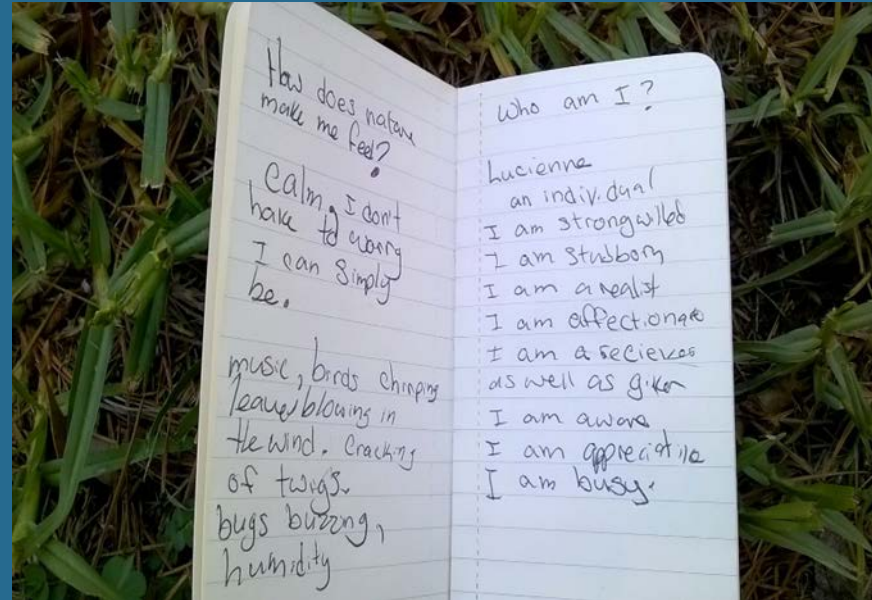 How does nature
make me feel?
Calm, I don't
have to worry
I can simply
be.
music, birds chirping
leaves blowing in
the wind. Cracking
of twigs.
bugs buzzing,
humidity
Who am I?
Lucienne
an individual
I am strongwilled
I am stubborn
I am a realist
I am affectionate
I am a reciever
as well as giver
I am aware
I am appreciative
I am busy.